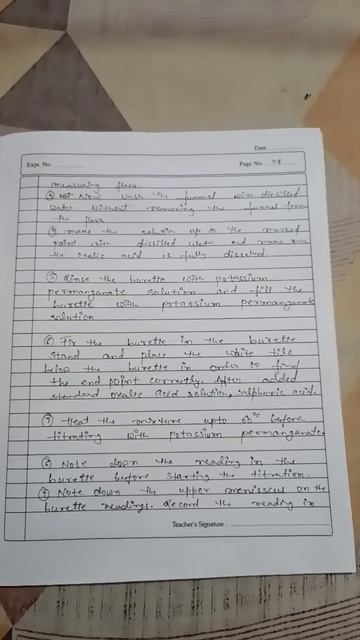 Date
Expt. No.
Page No. 08
measuring flask.
④ Now wash the funnel with distilled
water without removing the funnel from
the flask
make the solution up to the marked
point with distilled water and make sure
the oxalic acid is fully dissolved.
⑤ Rinse the burette with potassium
permanganate solution and fill the
burette with potassium permanganate
solution.
⑥ Fix the burette in the burette
stand and place the white tile
below the burette in order to find
the end point correctly. After added
standard oxalic acid solution, sulphuric acid.
⑦ Heat the mixture upto 60°C before
titrating with potassium permanganate.
⑧ Note down the reading in the
burette before starting the titration.
Note down the upper meniscus on the
burette readings. Record the reading in
Teacher's Signature :